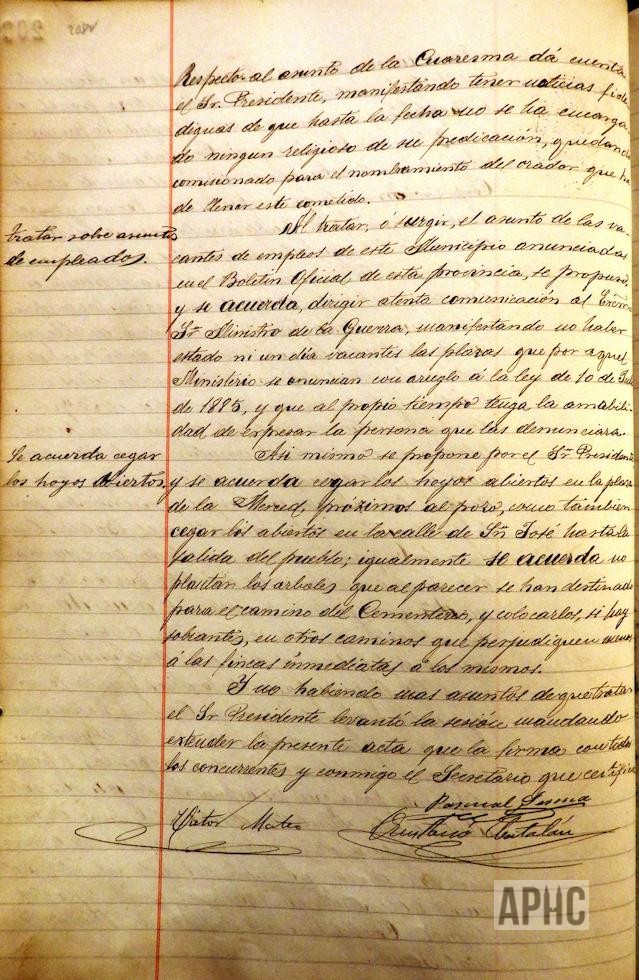 Respecto al asunto de la Cuaresma dá cuenta
el Sr. Presidente, manifestando tener noticias fide
dignas de que hasta la fecha no se ha encarga
do ningun religioso de su predicación, quedando
comisionado para el nombramiento del orador que ha
de tener este cometido.
tratar sobre asunto
de empleados.
Al tratar, ó surgir, el asunto de las va
cantes de empleos de este Municipio anunciadas
en el Boletin Oficial de esta provincia, se propuso,
y se acuerda, dirigir atenta comunicación al Excmo
Sr. Ministro de la Guerra, manifestando no haber
estado ni un día vacantes las plazas que por aquel
Ministerio se anuncian con arreglo á la ley de 10 de
de 1885, y que al propio tiempo tenga la amabili
dad de expresar la persona que las denunciara.
Se acuerda cegar
los hoyos abiertos
Asi mismo se propone por el Sr. Presidente
y se acuerda cegar los hoyos abiertos en la plaza
de la Merced, próximos al pozo, como tambien
cegar los abiertos en la calle de Sn. José hasta la
salida del pueblo; igualmente se acuerda no
plantan los arboles que al parecer se han destinado
para el camino del Cementerio, y colocarlos, si hay
sobrantes, en otros caminos que perjudiquen menos
á las fincas inmediatas á los mismos.
Y no habiendo mas asuntos de que tratar
el Sr Presidente levantó la sesión mandando
extender la presente acta que la firma con todos
los concurrentes y conmigo el Secretario que certifico
Pascual
Victor Mateo
Catalán
APHC